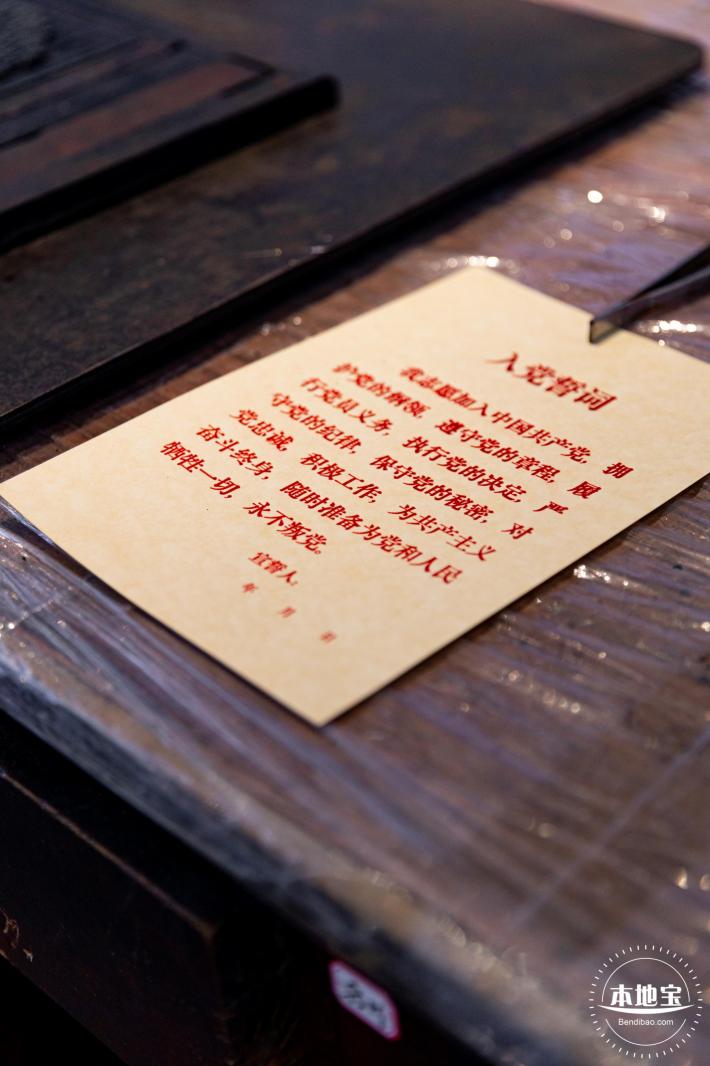 入党誓词
我志愿加入中国共产党，拥
护党的纲领，遵守党的章程，履
行党员义务，执行党的决定，严
守党的纪律，保守党的秘密，对
党忠诚，积极工作，为共产主义
奋斗终身，随时准备为党和人民
牺牲一切，永不叛党。
宣誓人：
年 月 日
本地宝
Bendibao.com